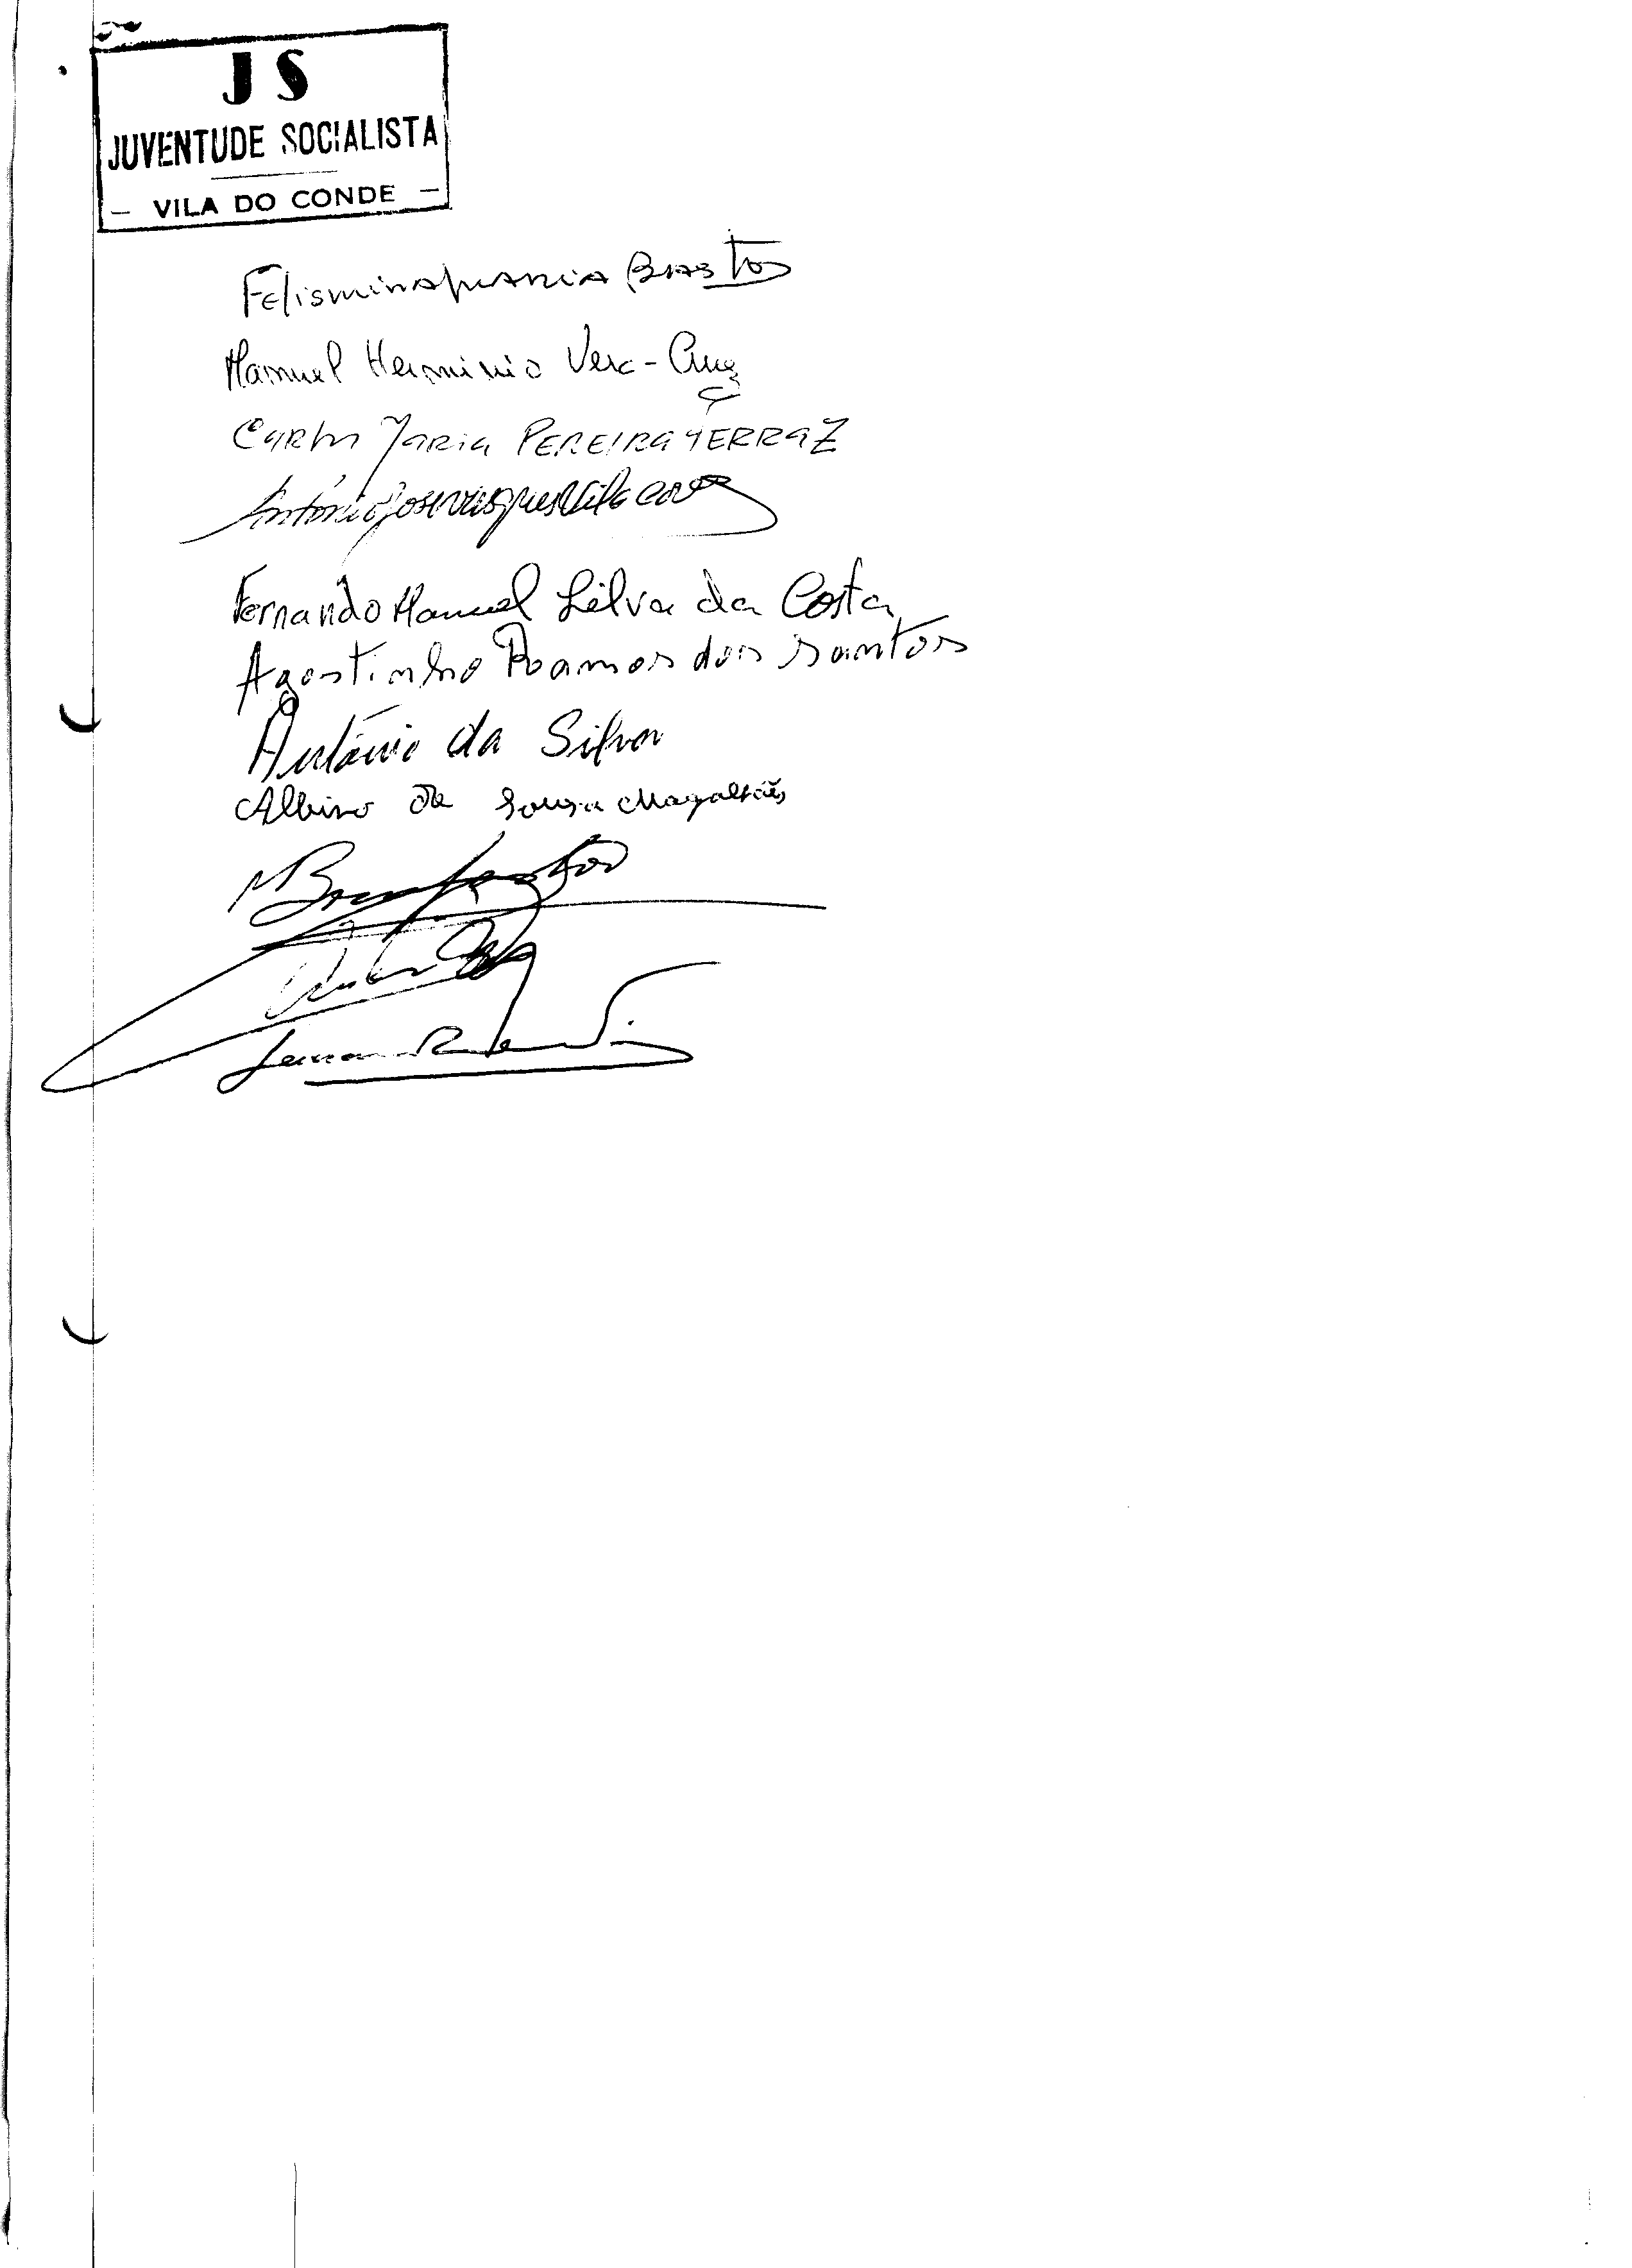 J S
JUVENTUDE SOCIALISTA
— VILA DO CONDE —
Felismina Maria Bastos
Manuel Herminio Vera-Cruz
Carlos Maria PEREIRA FERRAZ
António José Vasques Vila Cova
Fernando Manuel Silva da Costa
Agostinho Ramos dos Santos
António da Silva
Albino de Sousa Magalhães